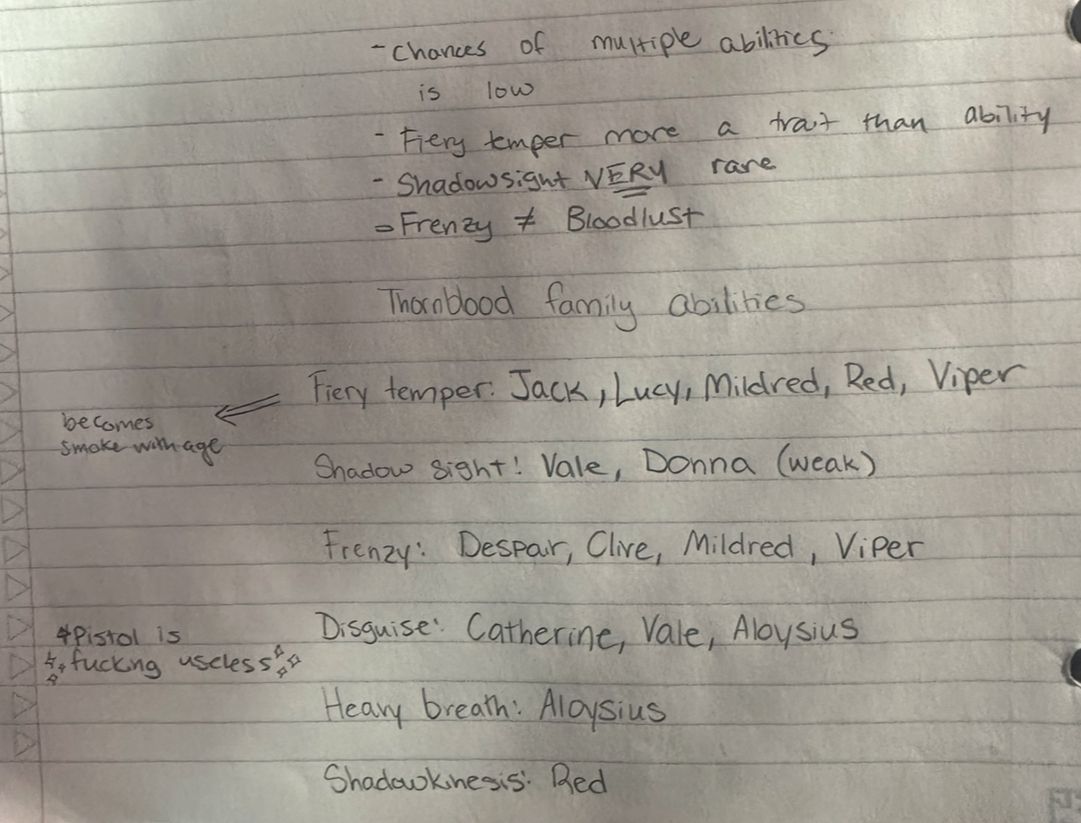 - Chances of multiple abilities
is low
- Fiery temper more a trait than ability
- Shadowsight VERY rare
- Frenzy ≠ Bloodlust
Thornblood family abilities
Fiery temper: Jack, Lucy, Mildred, Red, Viper
becomes
smoke with age
Shadow sight: Vale, Donna (weak)
Frenzy: Despair, Clive, Mildred, Viper
Disguise: Catherine, Vale, Aloysius
*Pistol is
fucking useless
Heavy breath: Aloysius
Shadowkinesis: Red